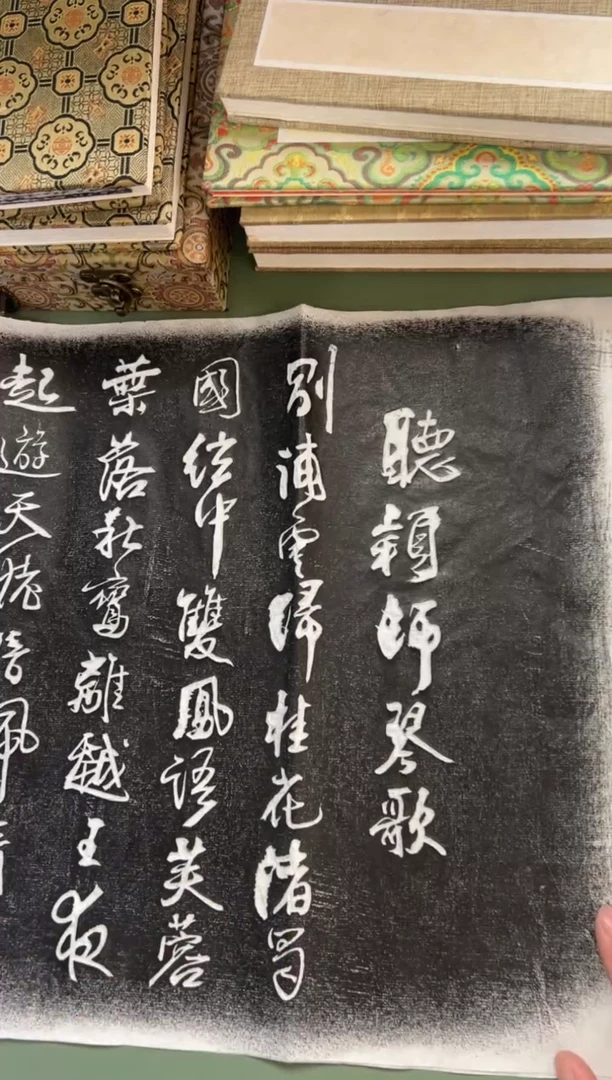 聽穎師琴歌
別浦雲歸桂花渚蜀
國絃中雙鳳語芙蓉
葉落秋鸞離越王夜
起遊天姥暗佩清